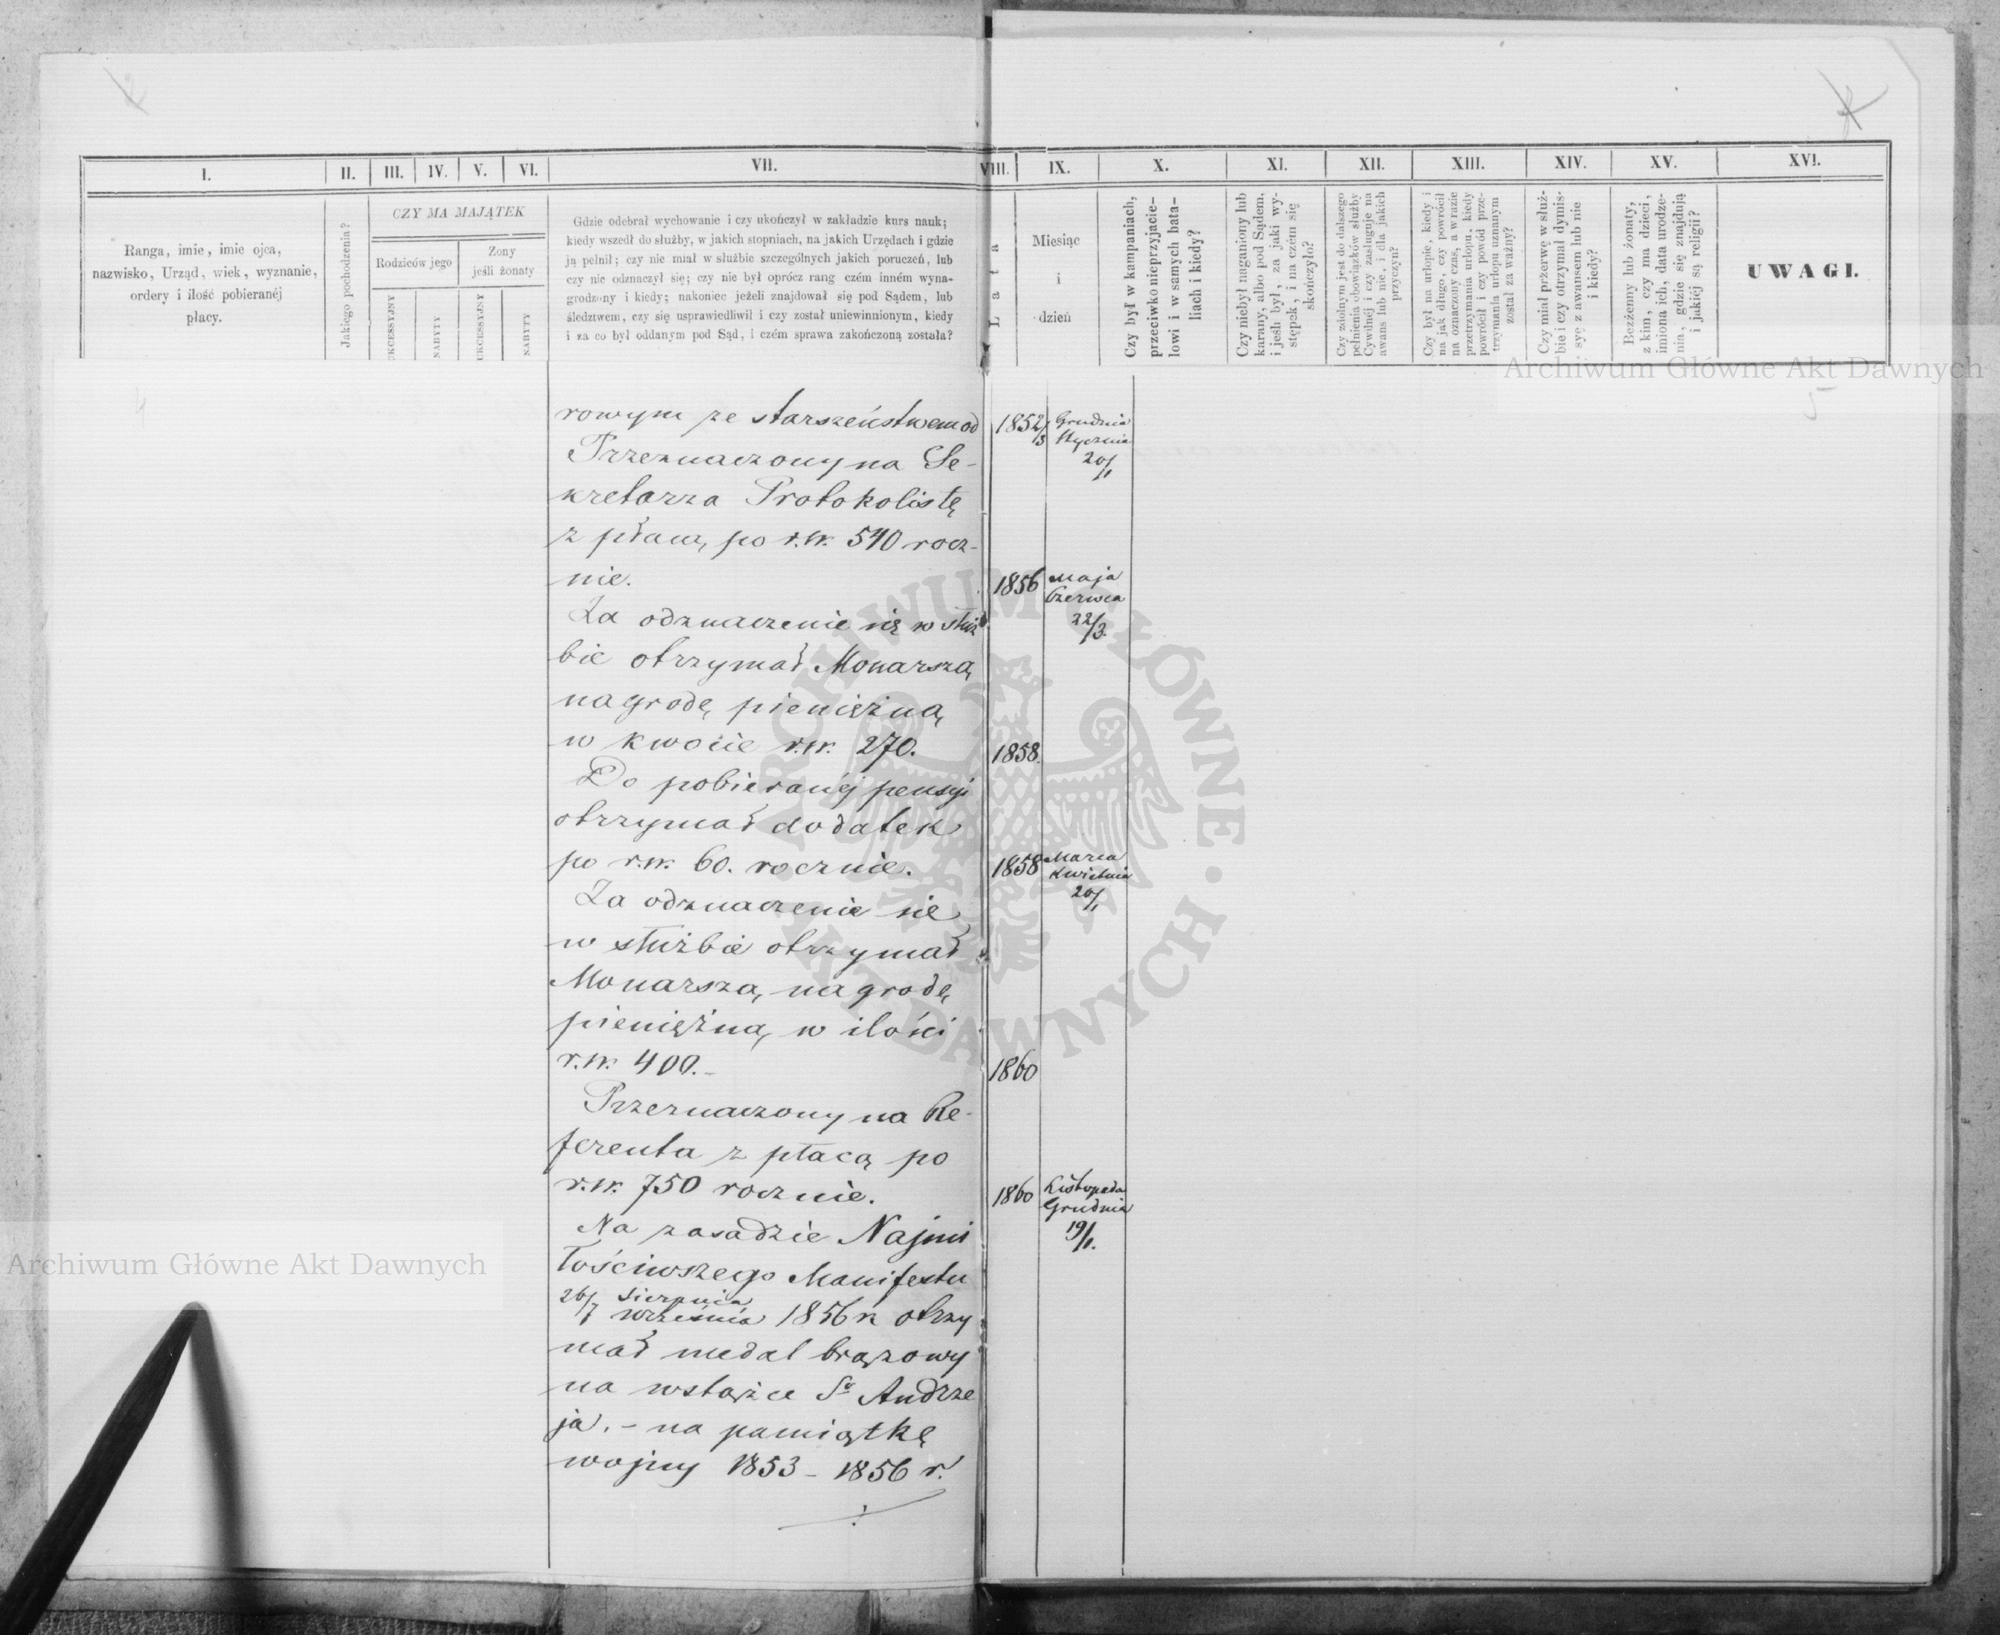 I.
II.
III.
IV.
V.
VI.
VII.
VIII.
IX.
X.
XI.
XII.
XIII.
XIV.
XV.
XVI.
Ranga, imie, imie ojca,
nazwisko, Urząd, wiek, wyznanie,
ordery i ilość pobieranéj
płacy.
Jakiego pochodzenia?
CZY MA MAJĄTEK
Rodziców jego
Żony
jeśli żonaty
SUKCESSYJNY
NABYTY
SUKCESSYJNY
NABYTY
Gdzie odebrał wychowanie i czy ukończył w zakładzie kurs nauk;
kiedy wszedł do służby, w jakich stopniach, na jakich Urzędach i gdzie
ją pełnił; czy nie miał w służbie szczególnych jakich poruczeń, lub
czy nie odznaczył się; czy nie był oprócz rang czém inném wyna-
grodzony i kiedy; nakoniec jeżeli znajdował się pod Sądem, lub
śledztwem, czy się usprawiedliwił i czy został uniewinnionym, kiedy
i za co był oddanym pod Sąd, i czém sprawa zakończoną została?
Lata
Miesiąc
i
dzień
Czy był w kampaniach,
przeciwko nieprzyjacie-
lowi i w samych bata-
liach i kiedy?
Czy niebył naganiony lub
karany, albo pod Sądem,
i jeśli był, za jaki wy-
stępek, i na czém się
skończyło?
Czy zdolnym jest do dalszego
pełnienia obowiązków służby
Cywilnéj i czy zasługuje na
awans lub nie, i dla jakich
przyczyn?
Czy był na urlopie, kiedy i
na jak długo, czy powrócił
na oznaczony czas, a w razie
przetrzymania urlopu, kiedy
powrócił i czy powód prze-
trzymania urlopu uznanym
został za ważny?
Czy miał przerwę w służ-
bie i czy otrzymał dymis-
syę z awansem lub nie
i kiedy?
Bezżenny lub żonaty,
z kim, czy ma dzieci,
imiona ich, data urodze-
nia, gdzie się znajdują
i jakiéj są religii?
UWAGI.
rowym ze starszeństwem od
1852/3 Grudnia
Stycznia
20/1
Przeznaczony na Se-
kretarza Protokolistę
z płacą po r.sr. 540 rocz-
nie.
1856 Maja
Czerwca
22/3.
Za odznaczenie się w służ
bie otrzymał Monarszą
nagrodę pieniężną
w kwocie r.sr. 270.
1858.
Do pobieranéj pensyi
otrzymał dodatek
po r.sr. 60. rocznie.
1858 Marca
Kwietnia
20/1
Za odznaczenie się
w służbie otrzymał
Monarszą nagrodę
pieniężną w ilości
r.sr. 400.-
1860
Przeznaczony na Re-
ferenta z płacą po
r.sr. 750 rocznie.
1860 Listopada
Grudnia
19/1.
Na zasadzie Najmi
łościwszego Manifestu
26/7 Sierpnia
Września 1856 r. otrzy
mał medal brązowy
na wstążce Sgo Andrze
ja. - na pamiątkę
wojny 1853 - 1856 r.
Archiwum Główne Akt Dawnych
Archiwum Główne Akt Dawnych
ARCHIWUM GŁÓWNE AKT DAWNYCH